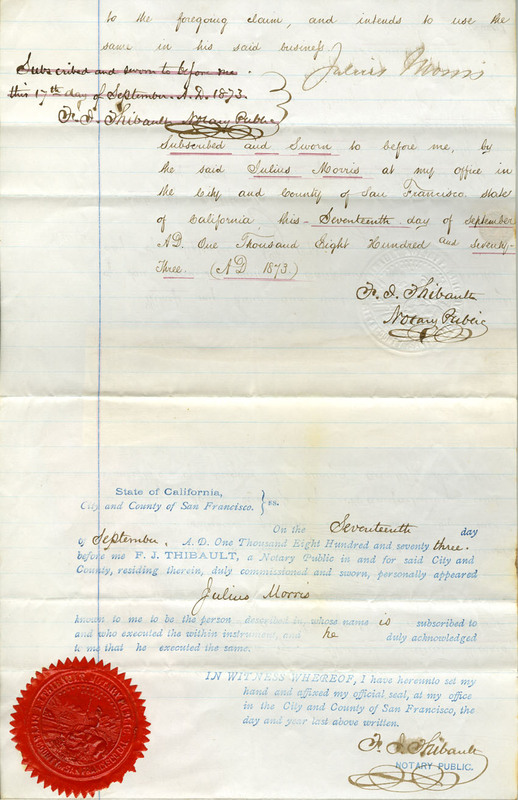 to the foregoing claim, and intends to use the
same in his said business.
Julius Morris
Subscribed and sworn to before me
this 17th day of September A.D. 1873.
F. J. Thibault Notary Public
Subscribed and Sworn to before me, by
the said Julius Morris at my office in
the City and County of San Francisco, State
of California, this Seventeenth day of September
AD. One Thousand Eight Hundred and Seventy-
Three. (AD 1873.)
F. J. Thibault
Notary Public
State of California,
City and County of San Francisco. } ss.
On the Seventeenth day
of September, A. D. One Thousand Eight Hundred and seventy three.
before me F. J. THIBAULT, a Notary Public in and for said City and
County, residing therein, duly commissioned and sworn, personally appeared
Julius Morris
known to me to be the person described in, whose name is subscribed to
and who executed the within instrument, and he duly acknowledged
to me that he executed the same.
IN WITNESS WHEREOF, I have hereunto set my
hand and affixed my official seal, at my office
in the City and County of San Francisco, the
day and year last above written.
F. J. Thibault
NOTARY PUBLIC.